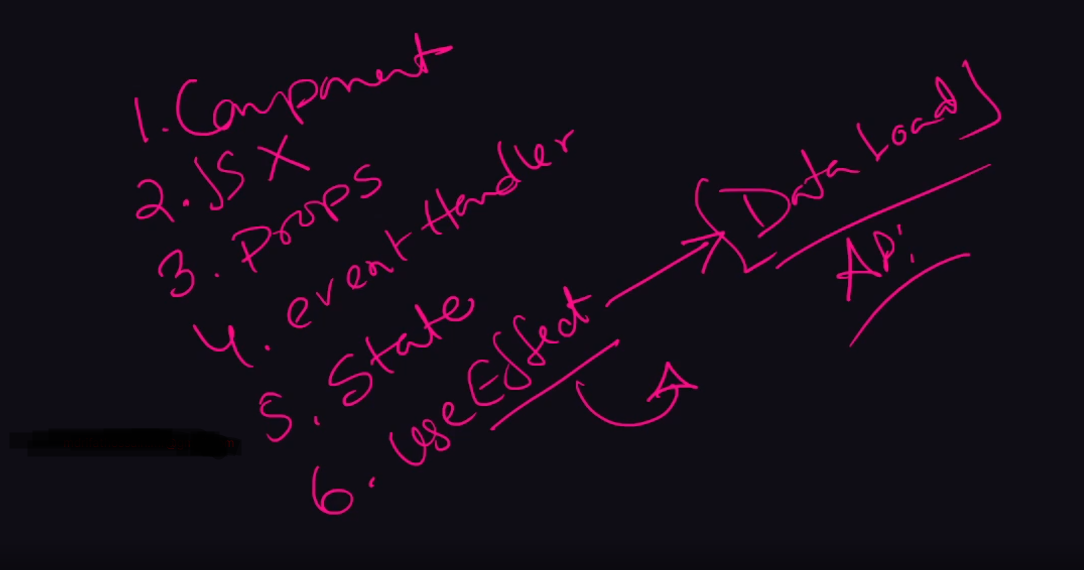 1. Component
2. JSX
3. Props
4. eventHandler
5. State
6. useEffect
[Data Load]
API